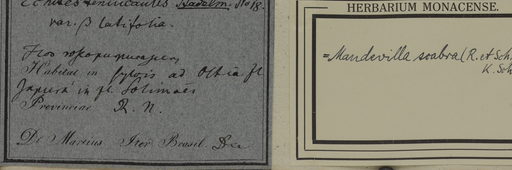 var. β latifolia.
Habitat in sylvis ad Ostia fl.
Japurá in fl. Solimoës
Provinciae R. N.
De Martius Iter Brasil. Dec
HERBARIUM MONACENSE.
=Mandevilla scabra (R. et Sch
K. Sch